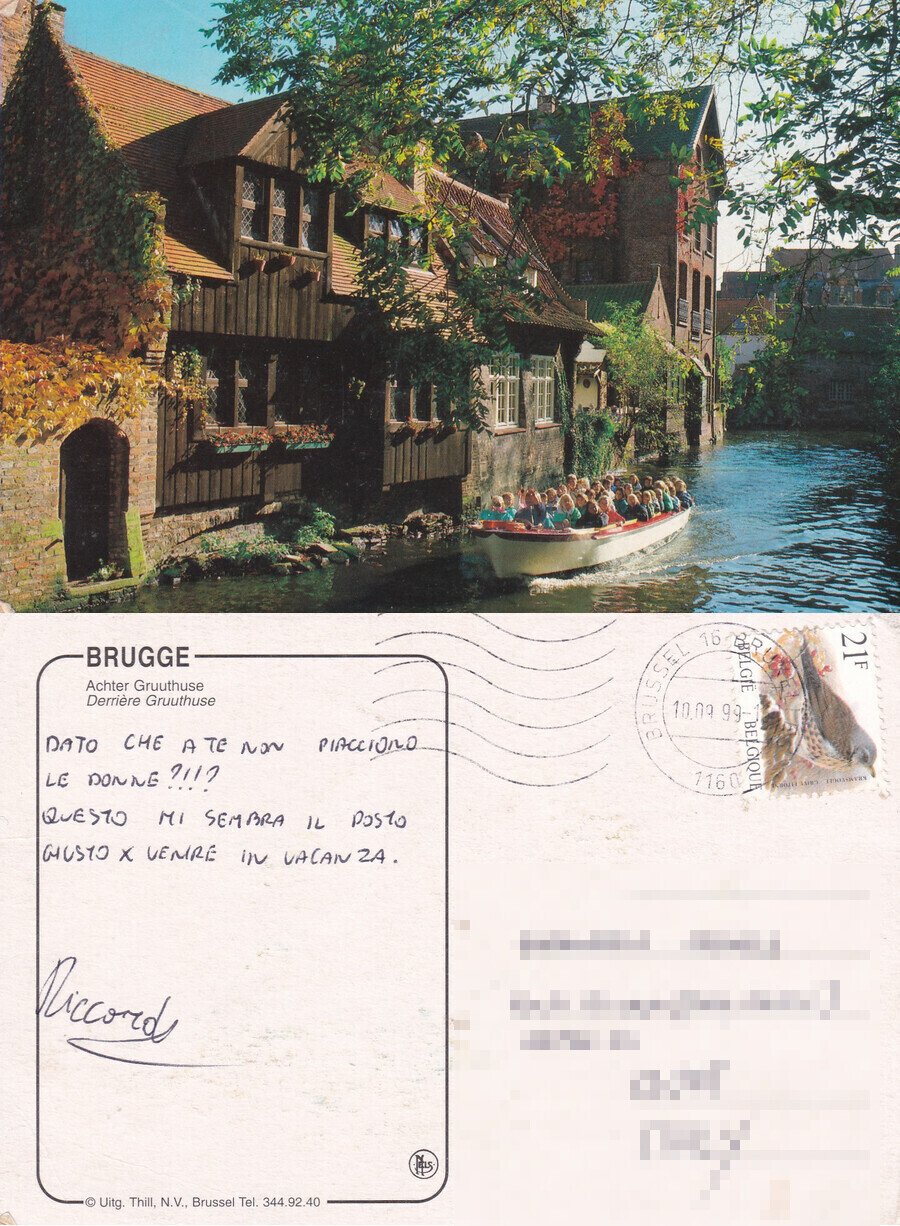 BRUGGE
Achter Gruuthuse
Derrière Gruuthuse
DATO CHE A TE NON PIACCIONO
LE DONNE?!!?
QUESTO MI SEMBRA IL POSTO
GIUSTO X VENIRE IN VACANZA.
Riccardo
NELS
© Uitg. Thill, N.V., Brussel Tel. 344.92.40
BRUSSEL 16 BRUXELLES
10.09.99
1160
21F
BELGIË - BELGIQUE
KRAMSVOGEL GRIVE LITORNE